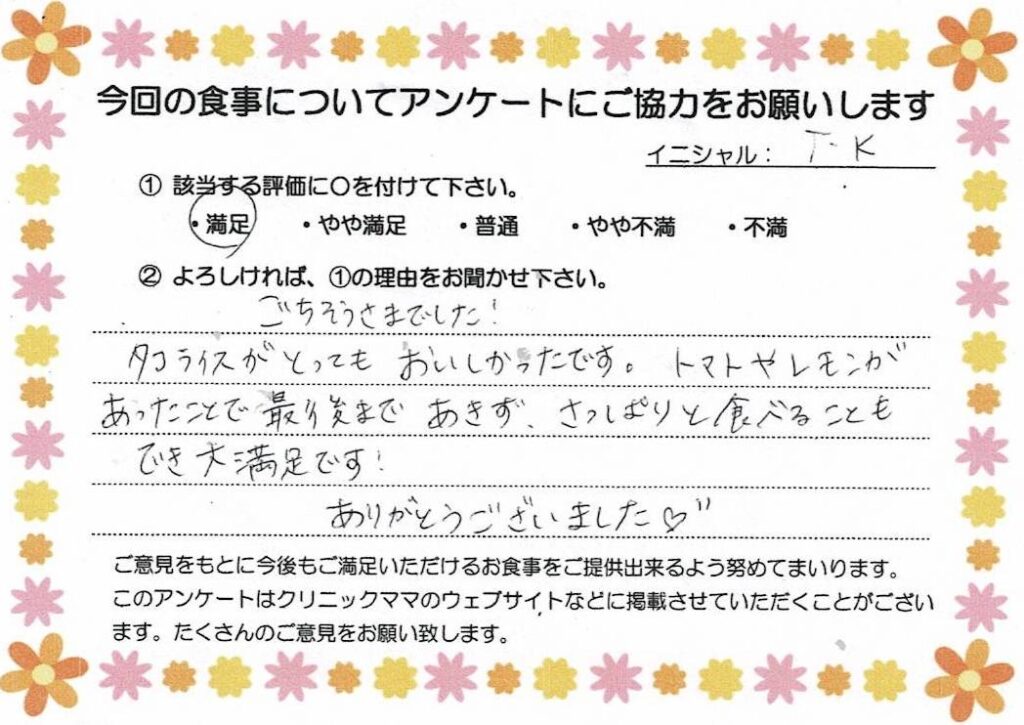 今回の食事についてアンケートにご協力をお願いします
イニシャル： T・K
① 該当する評価に〇を付けて下さい。
・満足 ・やや満足 ・普通 ・やや不満 ・不満
② よろしければ、①の理由をお聞かせ下さい。
ごちそうさまでした!
タコライスがとってもおいしかったです。トマトやレモンが
あったことで最後まであきず、さっぱりと食べることも
でき大満足です!
ありがとうございました♡"
ご意見をもとに今後もご満足いただけるお食事をご提供出来るよう努めてまいります。
このアンケートはクリニックママのウェブサイトなどに掲載させていただくことがござい
ます。たくさんのご意見をお願い致します。